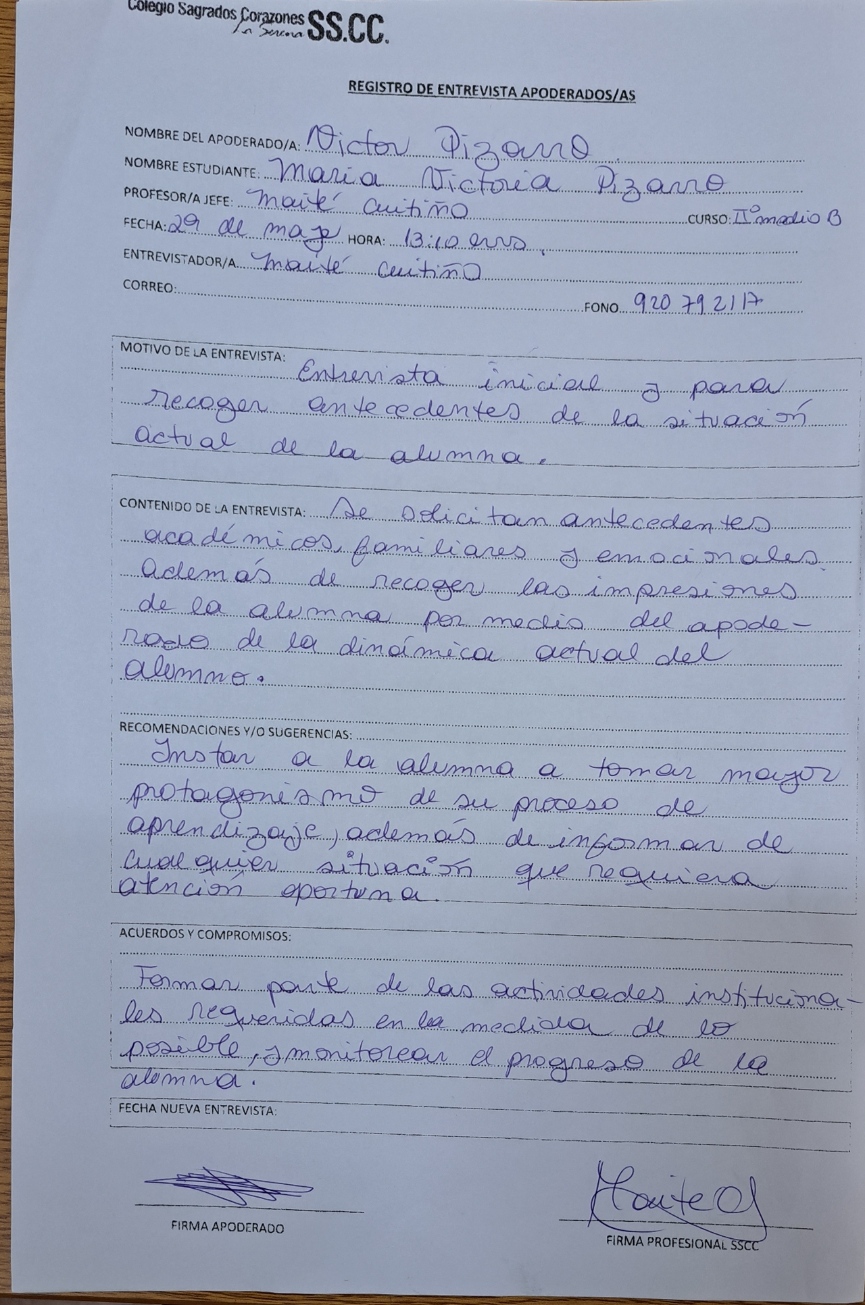 Colegio Sagrados Corazones SS.CC.
La Serena
REGISTRO DE ENTREVISTA APODERADOS/AS
NOMBRE DEL APODERADO/A: Victor Pizarro
NOMBRE ESTUDIANTE: Maria Victoria Pizarro
PROFESOR/A JEFE: Maité Cuitiño CURSO: IIº medio B
FECHA: 29 de mayo HORA: 13:10
ENTREVISTADOR/A Maité Cuitiño
CORREO: FONO 920 79 2117
MOTIVO DE LA ENTREVISTA:
Entrevista inicial y para
recoger antecedentes de la situación
actual de la alumna.
CONTENIDO DE LA ENTREVISTA: Se solicitan antecedentes
académicos, familiares y emocionales.
Además de recoger las impresiones
de la alumna por medio del apode-
rado de la dinámica actual del
alumno.
RECOMENDACIONES Y/O SUGERENCIAS:
Instar a la alumna a tomar mayor
protagonismo de su proceso de
aprendizaje, además de informar de
cualquier situación que requiera
atención oportuna.
ACUERDOS Y COMPROMISOS:
Formar parte de las actividades instituciona-
les requeridas en la medida de lo
posible, y monitorear el progreso de la
alumna.
FECHA NUEVA ENTREVISTA:
FIRMA APODERADO
FIRMA PROFESIONAL SSCC